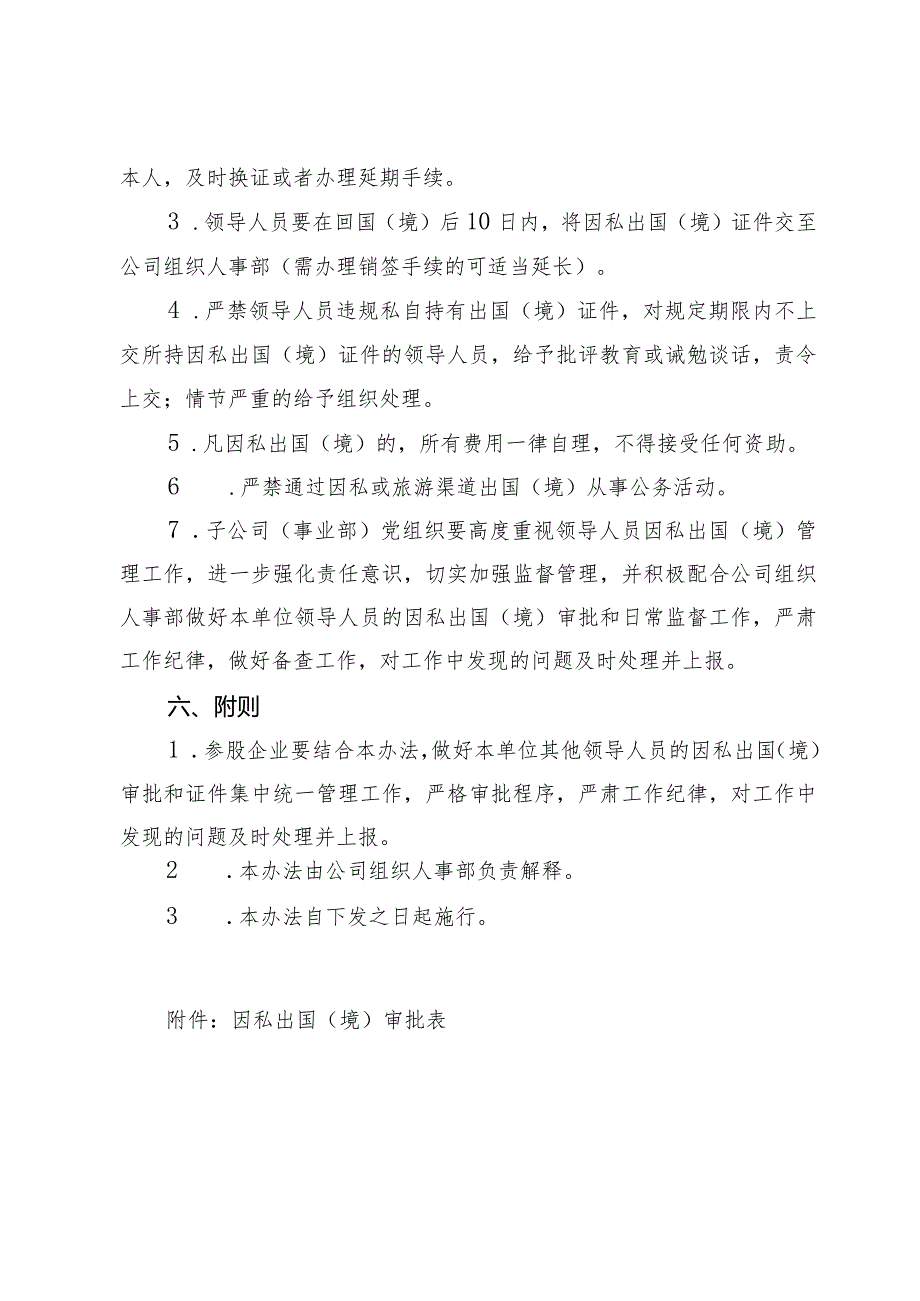 本人，及时换证或者办理延期手续。
3 .领导人员要在回国（境）后10日内，将因私出国（境）证件交至
公司组织人事部（需办理销签手续的可适当延长）。
4 .严禁领导人员违规私自持有出国（境）证件，对规定期限内不上
交所持因私出国（境）证件的领导人员，给予批评教育或诫勉谈话，责令
上交；情节严重的给予组织处理。
5 .凡因私出国（境）的，所有费用一律自理，不得接受任何资助。
6 .严禁通过因私或旅游渠道出国（境）从事公务活动。
7 .子公司（事业部）党组织要高度重视领导人员因私出国（境）管
理工作，进一步强化责任意识，切实加强监督管理，并积极配合公司组织
人事部做好本单位领导人员的因私出国（境）审批和日常监督工作，严肃
工作纪律，做好备查工作，对工作中发现的问题及时处理并上报。
六、附则
1 .参股企业要结合本办法，做好本单位其他领导人员的因私出国（境）
审批和证件集中统一管理工作，严格审批程序，严肃工作纪律，对工作中
发现的问题及时处理并上报。
2 .本办法由公司组织人事部负责解释。
3 .本办法自下发之日起施行。
附件：因私出国（境）审批表